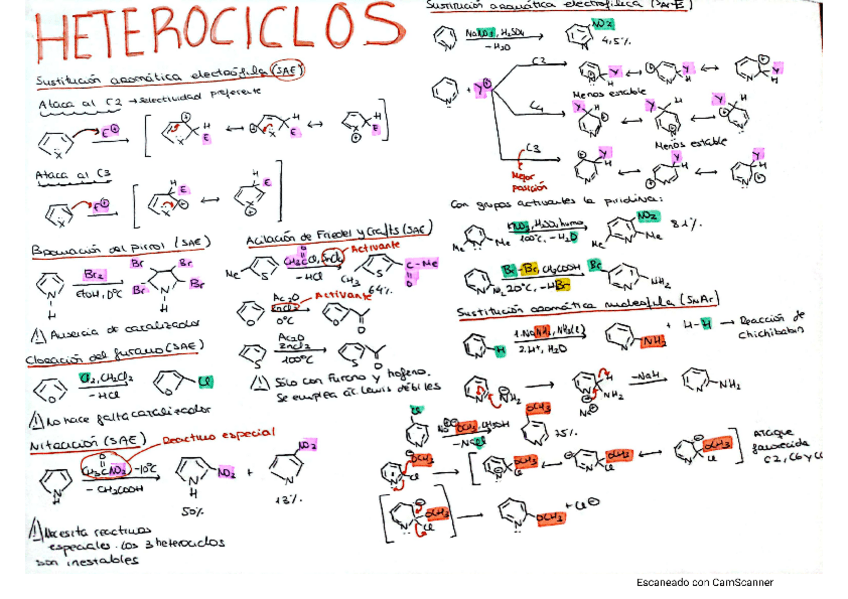 HETEROCICLOS
Sustitución aromática electrófila (SAE)
Ataca al C2 → selectividad preferente
E⊕
X
E
H
Ataca al C3
E⊕
X
H E
Bromación del pirrol (SAE)
N
H
Br2
EtOH, 0ºC
Br Br
Br Br
N
H
⚠ Ausencia de catalizador
Cloración del furano (SAE)
O
Cl2, CH2Cl2
- HCl
O Cl
⚠ No hace falta catalizador
Nitración (SAE)
Reactivo especial
-10ºC
- CH3COOH
NO2
50%
+
NO2
13%
⚠ Necesita reactivos
especiales. Los 3 heterociclos
son inestables
Acilación de Friedel y Crafts (SAE)
Activante
Me S
- HCl
CH3 S C-Me
64%
Ac2O
ZnCl2
Activante
0ºC
Ac2O
ZnCl2
100ºC
⚠ Sólo con furano y
Se emplea ác. Lewis débiles
Sustitución aromática electrofílica (SArE)
H2SO4
- H2O
NO2
4,5%
+ Y⊕
C2
Menos estable
C4
Menos estable
C3
Mejor
posición
Con grupos activantes la piridina:
Me N Me
100ºC, -H2O
NO2
Me N Me
81%
Br-Br, CH3COOH
20ºC, -HBr
Br
NH2
Sustitución aromática nucleófila (SNAr)
1. NaNH2, NH3(l)
2. H+, H2O
N H
N NH2
+ H-H → Reacción de
Chichibabin
NH2
-NaH
N NH2
Cl
OCH3
75%
OCH3
Cl
Ataque
favorecido
C2, C6 y C4
OCH3
Cl
N OCH3
+ Cl⊖
Escaneado con CamScanner